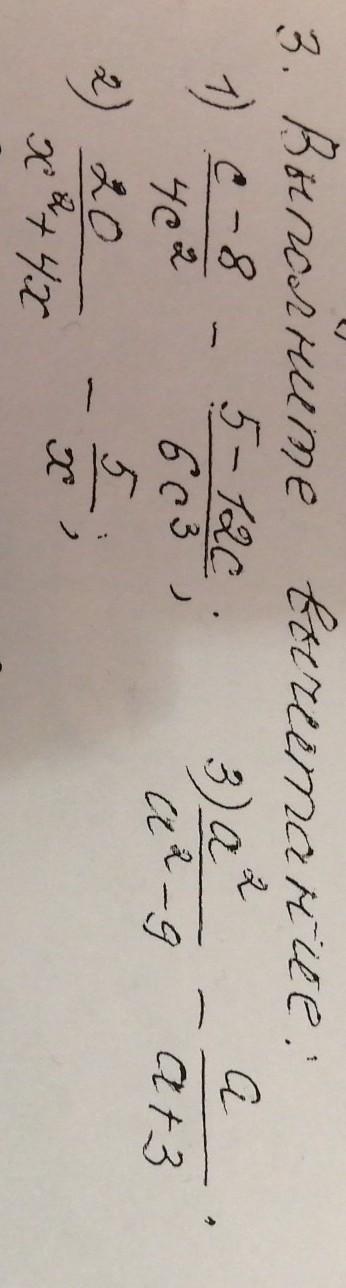 3. Выполните вычитание:
1) \frac{c-8}{4c^2} - \frac{5-12c}{6c^3};
2) \frac{20}{x^2+4x} - \frac{5}{x};
3) \frac{a^2}{a^2-9} - \frac{a}{a+3}.